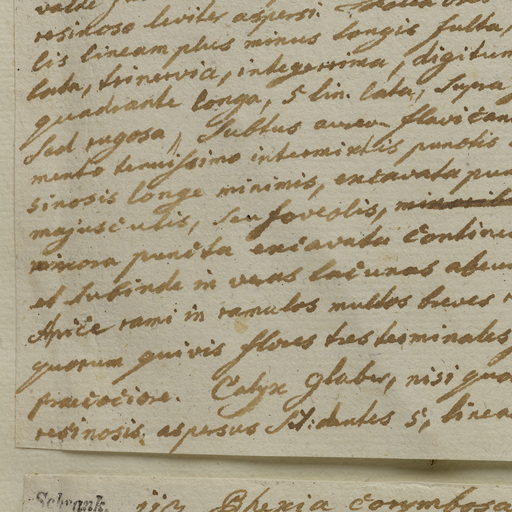 resinoso leviter aspersi
lis lineam plus minus longis fulta,
lata, trinervia, integerrima, digitum
quadrante longa, 5 lin. lata, supra
sed rugosa, subtus aureo-flavican
mento tenuissimo intermixtis punctis
sinosis longe minimis, excavata pun
majusculis, seu foveolis,
minora puncta excavata contine
et subinde in veras lacunas abeu
Apice rami in ramulos multos breves
quorum quivis flores tres terminales
praecociore. Calyx glaber, nisi quo
resinosis aspersus sit: dentes 5, linea
Schrank. Rhexia corymbosa